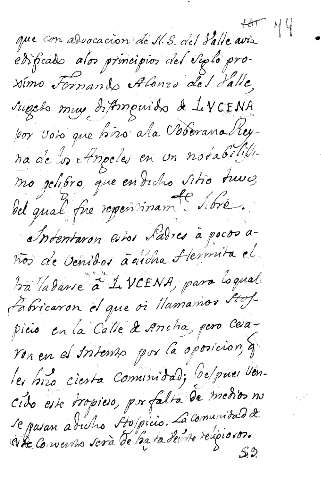 74
que con advocacion de N. S. del Valle avia
edificado alos principios del Siglo pro-
ximo Fernando Alonso del Valle,
sugeto muy distinguido de LVCENA
por voto que hizo ala Soberana Rey-
na de los Angeles en un notabilissi-
mo peligro, que en dicho Sitio tuvo,
del qual fue repentinam.te libre.
Intentaron estos Padres à pocos a-
ños de venidos à dicha Hermita el
trasladarse à LVCENA, para lo qual
fabricaron el que oi llamamos Hos-
picio en la Calle de Ancha, pero cesa-
ron en el Intento por la oposicion, q
les hizo cierta Comunidad; despues ven-
cido este tropieso, por falta de medios no
se pasan a dicho Hospicio. La Comunidad de
este Convento serà de hasta veinte religiosos.